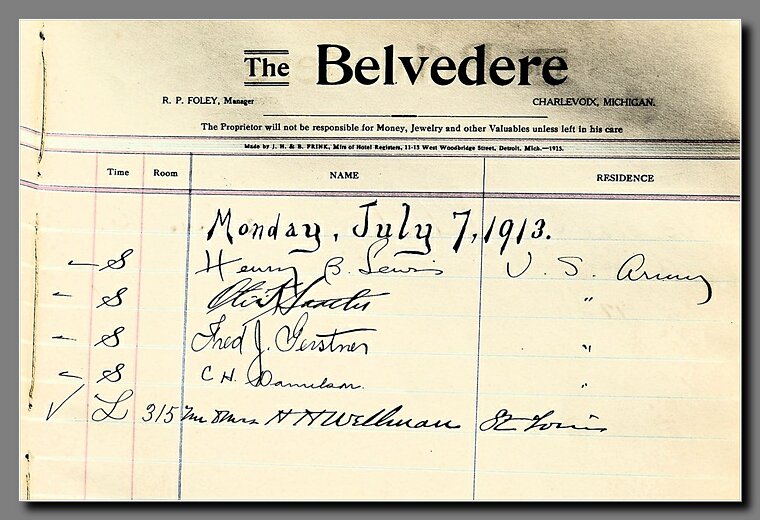 The Belvedere
R. P. FOLEY, Manager CHARLEVOIX, MICHIGAN.
The Proprietor will not be responsible for Money, Jewelry and other Valuables unless left in his care
Made by J. H. & B. FRINK, Mfrs of Hotel Registers, 11-13 West Woodbridge Street, Detroit, Mich.—1913.
Time Room NAME RESIDENCE
Monday, July 7, 1913.
S Henry B. Lewis U. S. Army
S "
S Fred J. Gerstner "
S C H. Danielson. "
✓ L 315 Mr & Mrs H H Wellman St Louis